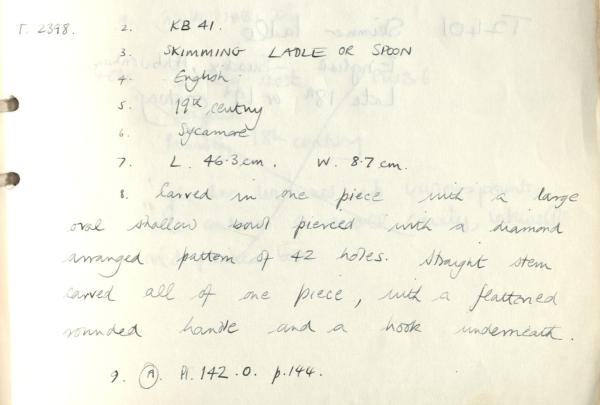 T. 2398. 2. KB 41.
3. SKIMMING LADLE OR SPOON
4. English.
5. 19th century
6. Sycamore
7. L. 46.3 cm. W. 8.7 cm.
8. Carved in one piece with a large
oval shallow bowl pierced with a diamond
arranged pattern of 42 holes. Straight stem
carved all of one piece, with a flattened
rounded handle and a hook underneath.
9. (A). Pl. 142. O. p. 144.